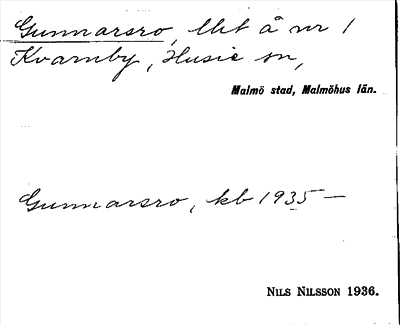 Gunnarsro, lht å nr 1
Kvarnby, Husie sn,
Malmö stad, Malmöhus län.
Gunnarsro, kb 1935 —
NILS NILSSON 1936.